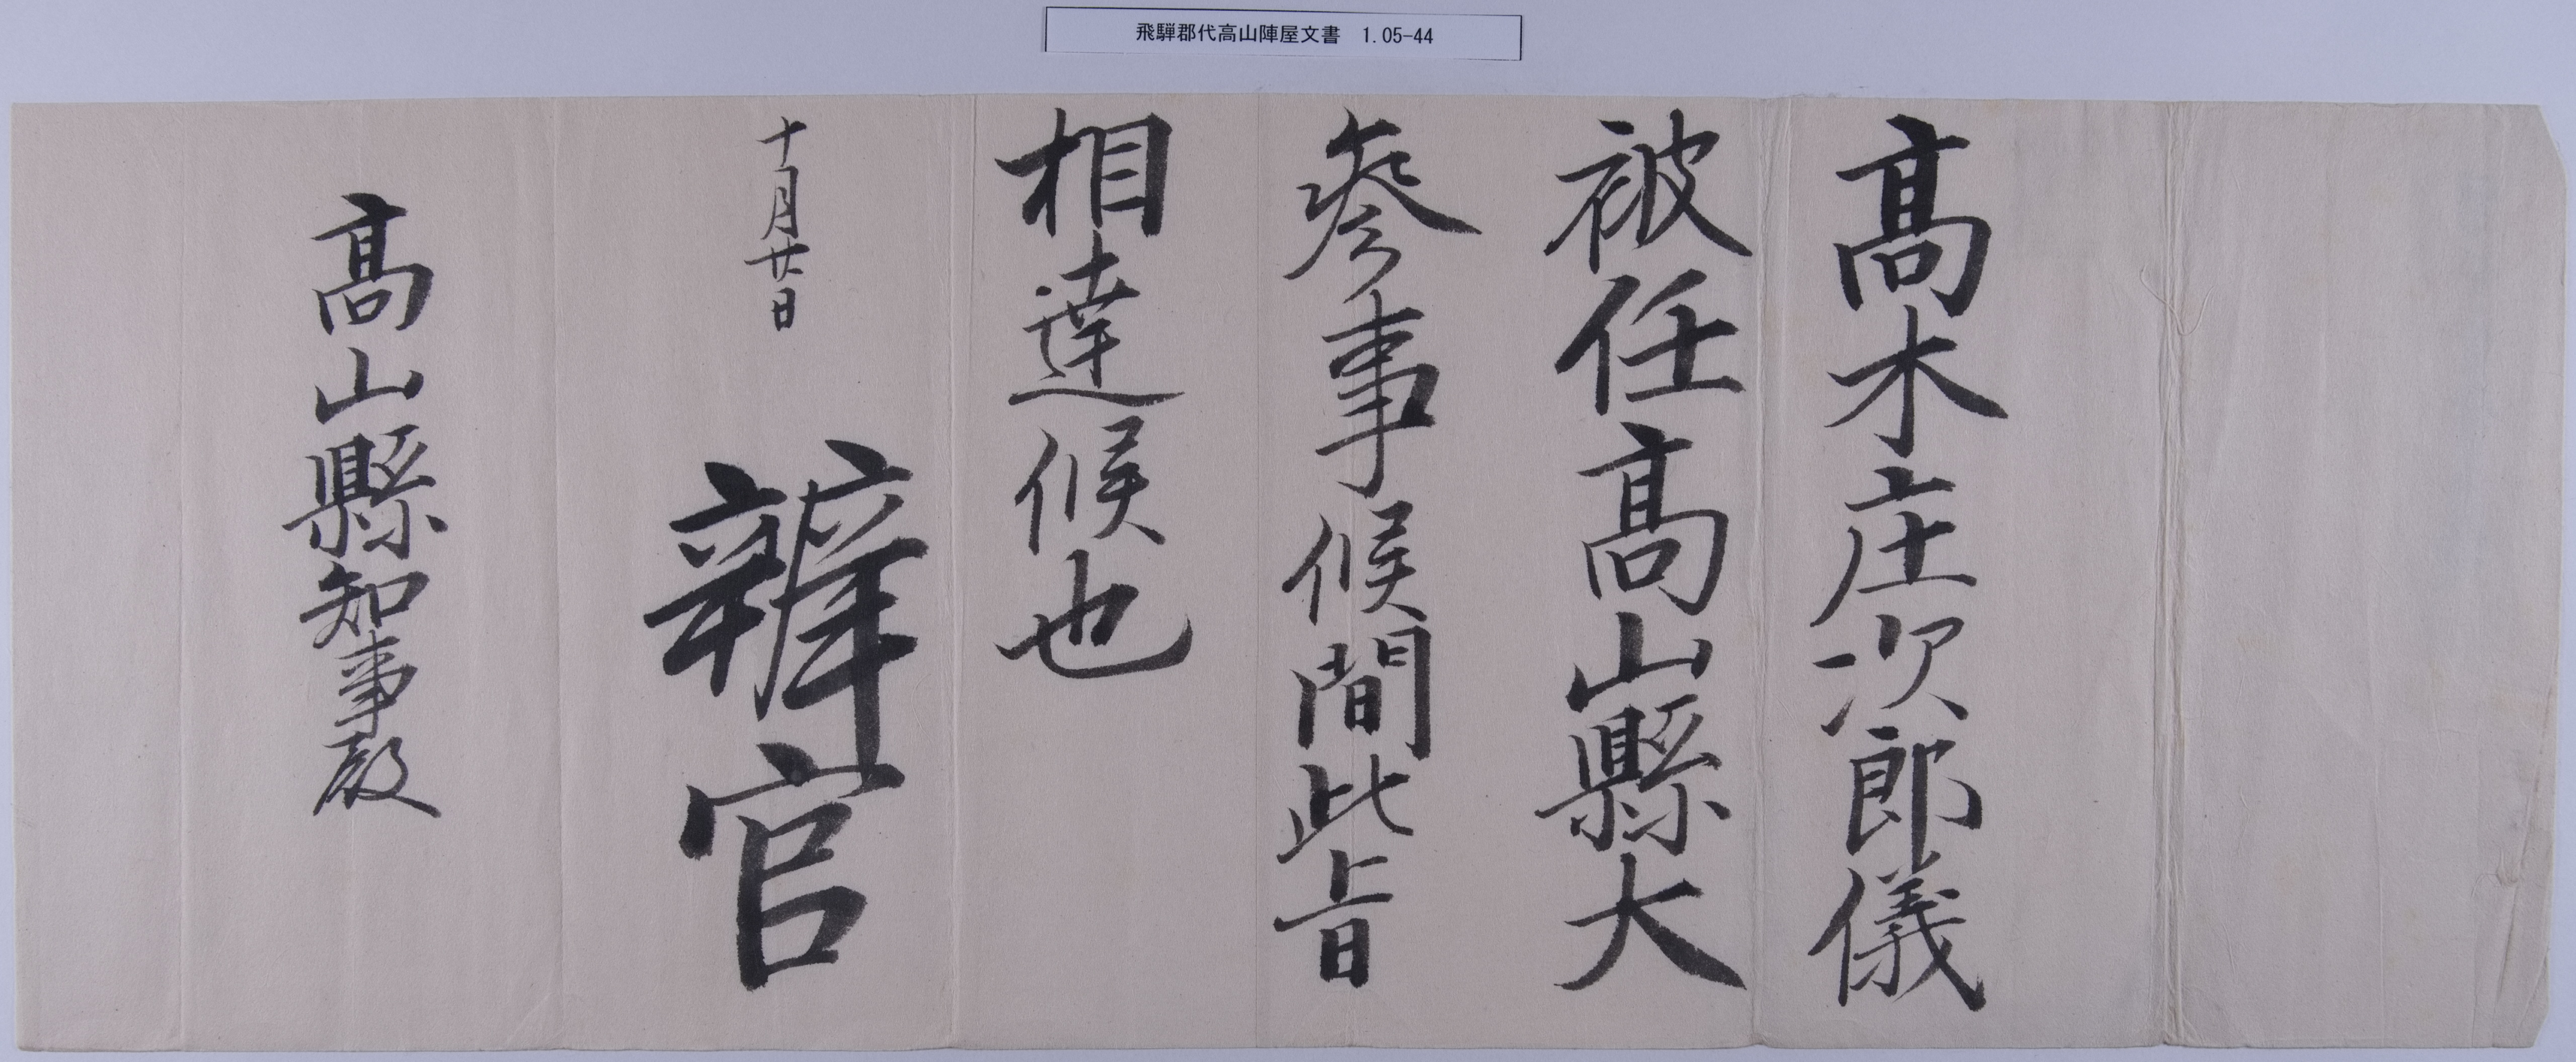 飛騨郡代高山陣屋文書　1.05-44
髙木庄次郎儀
被任髙山縣大
参事候間此旨
相達候也
十月廿日
辨官
髙山縣知事殿